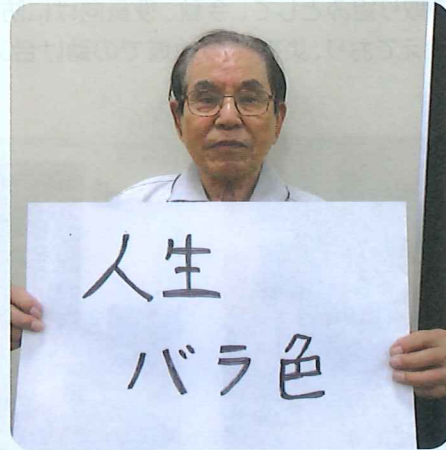 人生
バラ色